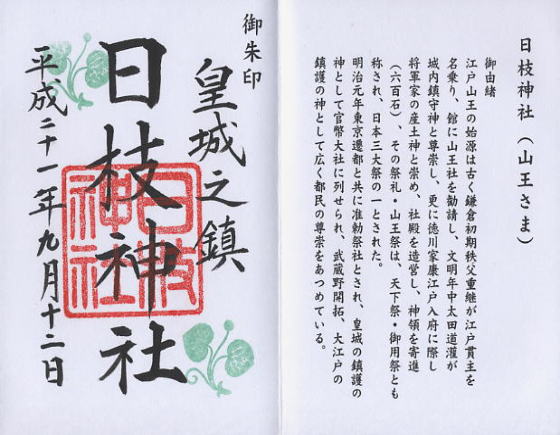 日枝神社（山王さま）
御由緒
江戸山王の始源は古く鎌倉初期秩父重継が江戸貫主を
名乗り、館に山王社を勧請し、文明年中太田道灌が
城内鎮守神と尊崇し、更に徳川家康江戸入府に際し
将軍家の産土神と崇め、社殿を造営し、神領を寄進
（六百石）、その祭礼・山王祭は、天下祭・御用祭とも
称され、日本三大祭の一とされた。
明治元年東京遷都と共に准勅祭社とされ、皇城の鎮護の
神として官幣大社に列せられ、武蔵野開拓、大江戸の
鎮護の神として広く都民の尊崇をあつめている。
御朱印
皇城之鎮
日枝神社
日枝神社
平成二十一年九月十二日